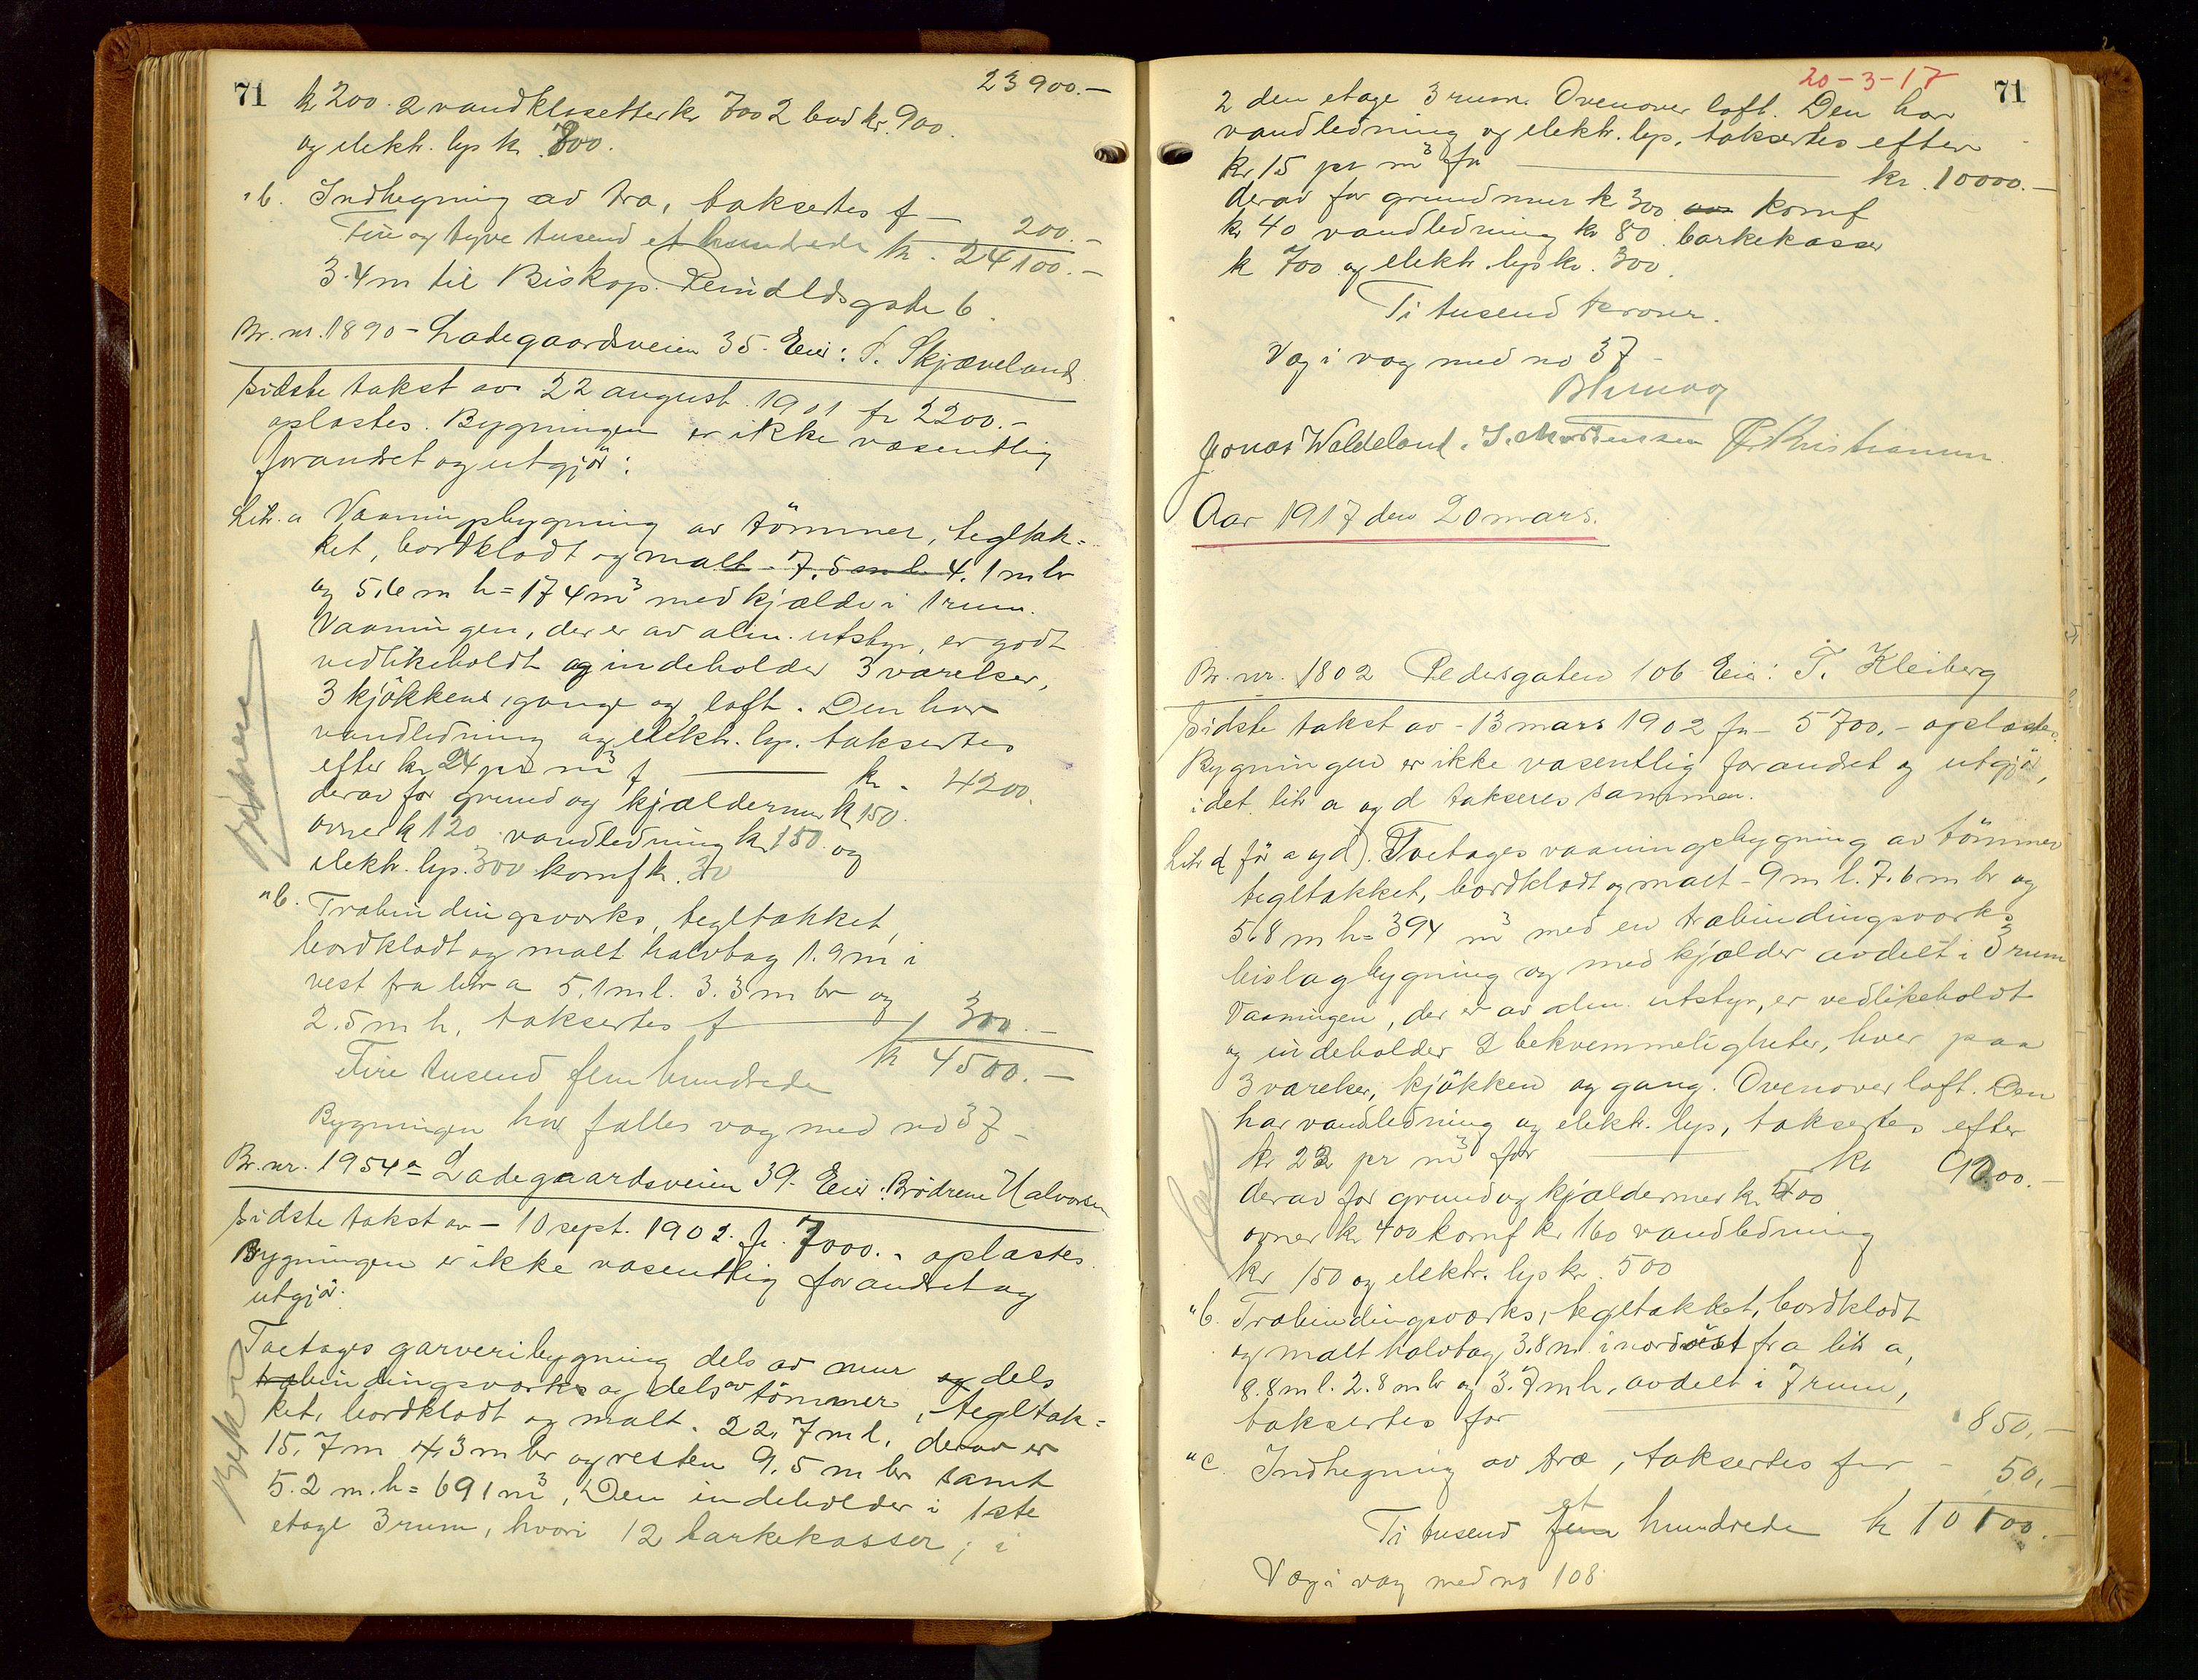 71
23900.-
kr 200. 2 vandklosetter kr 700 2 bad kr. 900.
og elektr. lys kr 800.
"b. Indhegning av træ, taksertes f - 200.-
Fire og tyve tusend et hundrede kr. 24100.-
3.4m til Biskop Reinaldsgate 6.
Br. nr. 1890 - Ladegaardsveien 35. Eier: S. Skjæveland
Sidste takst av 22 august 1901 fr 2200.-
oplæstes. Bygningen er ikke væsentlig
forandret og utgjør:
Litr. a Vaaningsbygning av tömmer, tegltæk-
ket, bordklædt og malt - 7.5 m l. 4.1 m br
og 5.6 m h = 174 m³ med kjælder i 1 rum.
Vaaningen, der er av alm. utstyr, er godt
vedlikeholdt og indeholder 3 værelser,
3 kjökkener, gange og loft. Den har
vandledning og elektr. lys. taksertes
efter kr 24 pr m³ f kr. 4200.
derav for grund og kjældermur kr 150.
ovner kr 120 vandledning kr 150 og
elektr. lys. 300 komf kr. 30
"b. Træbindingsværks, tegltækket,
bordklædt og malt halvtag 1.9 m i
vest fra litr a 5.1 m l. 3.3 m br og
2.5 m h, taksertes f 300.-
kr 4500.-
Fire tusend fem hundrede
Bygningen har fælles væg med no 37 -
Br. nr. 1954a Ladegaardsveien 39. Eier: Brödrene Halvorsen
Sidste takst av - 10 sept. 1902. fr. 7000.- oplæstes.
Bygningen er ikke væsentlig forandret og
utgjör:
Toetages garveribygning dels av mur og dels
træbindingsværks og dels av tömmer, tegltæk-
ket, bordklædt og malt. 22,7 m l, derav er
15,7 m 4,3 m br og resten 9,5 m br samt
5.2 m. h = 691 m³, Den indeholder i 1ste
etage 3 rum, hvori 12 barkekasser; i
20-3-17
71
2 den etage 3 rum. Ovenover loft. Den har
vandledning og elektr. lys, taksertes efter
kr 15 pr m³ for kr. 10000.-
derav for grundmur kr 300 komf
kr 40 vandledning kr 80 barkekasser
kr 700 og elektr. lys kr. 300.
Ti tusend kroner.
Væg i væg med no 37 -
Jonas Waldeland. S. Mortensen Kristiansen
Aar 1917 den 20 mars.
Br. nr. 1802 Pedersgaten 106 Eier: T. Kleiberg
Sidste takst av - 13 mars 1902 fr - 5700.- oplæstes.
Bygningen er ikke væsentlig forandret og utgjör,
idet litr a og d takseres sammen.
Litr d (för a og d). Toetages vaaningsbygning av tömmer
tegltækket, bordklædt og malt - 9 m l. 7.6 m br og
5.8 m h = 394 m³ med en træbindingsværks
bislagbygning og med kjælder avdelt i 3 rum
Vaaningen, der er av alm. utstyr, er vedlikeholdt
og indeholder 2 bekvemmeligheter, hver paa
3 værelser, kjökken og gang. Ovenover loft. Den
har vandledning og elektr. lys, taksertes efter
kr 23 pr m³ for kr 9200.-
derav for grund og kjældermur kr 500
ovner kr 400 komf kr 160 vandledning
kr 150 og elektr. lys kr. 500
"b. Træbindingsværks, tegltækket, bordklædt
og malt halvtag 3.8 m i nordöst fra litr a,
8.8 m l. 2.8 m br og 3.7 m h, avdelt i 7 rum,
taksertes for 850,-
"c. Indhegning av træ, taksertes for - 50,-
Ti tusend et hundrede kr 10100.-
Væg i væg med no 108